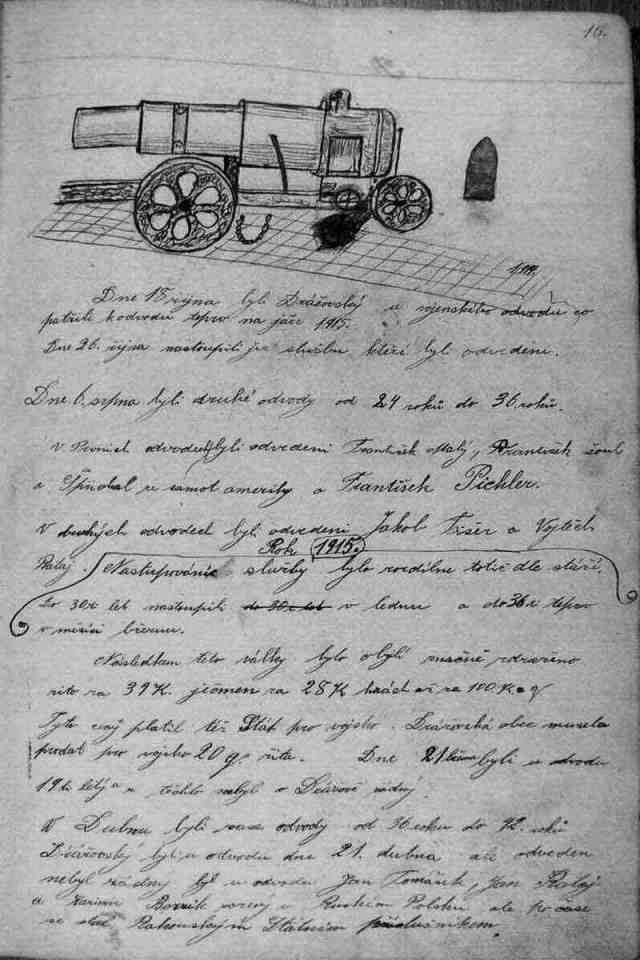 16.
1914.
Dne 15 října byli Dráčovský u vojenského odvodu co
patřili k odvodu teprv na jaře 1915.
Dne 26. října nastoupili již službu kteří byli odvedeni.
Dne 6. srpna byli druhé odvody od 24 roků do 36 roků.
v Prvních odvodech byli odvedeni František Malý, František
a ze samot ameriky a František Pichler.
V druhých odvodech byli odvedeni Jakob Fišer a Vojtěch
Rataj.
Rok 1915.
Nastupování služby bylo rozdílné totiž dle stáří.
do 30ti let nastoupili v lednu a do 36ti teprv
v měsíci březnu.
Následkem této války bylo obylí značně zdraženo
žito za 39 K. ječmen za 28 K hrách až za 100 K a q
Tyto ceny platil též Stát pro vojsko. Dráčovská obec musela
prodat pro vojsko 20 q žita. Dne 21 byli u odvodu
19ti letý a z těchto nebyl v Dráčově žádný.
V Dubnu byli zase odvody od 36 roku do 42. roků
Dráčovský byli u odvodu dne 21. dubna ale odveden
nebyl žádný byl u odvodu Jan Tomášek, Jan Rataj
a v Ruském Polsku ale
se stal Rakouským Státním příslušníkem.